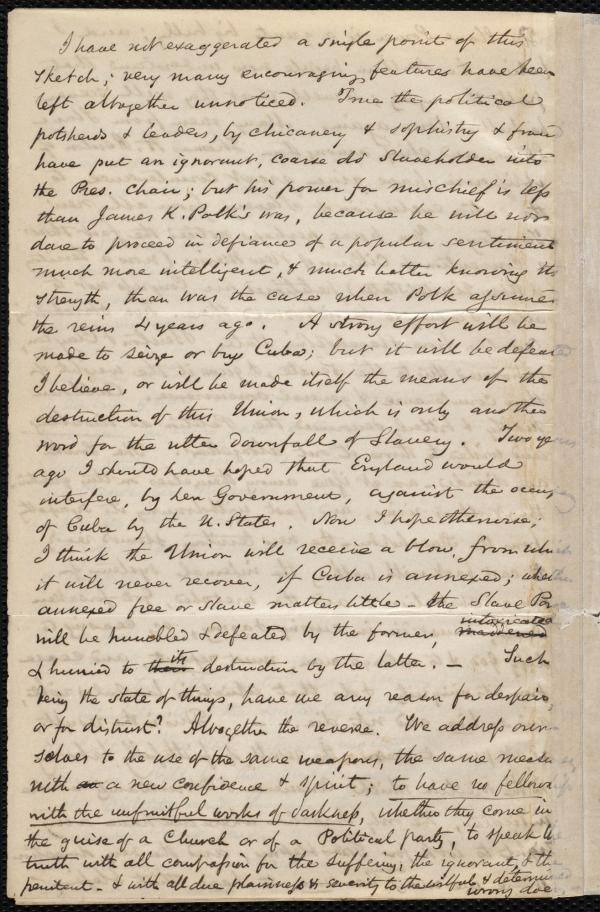 I have not exaggerated a single point of this
sketch; very many encouraging features have been
left altogether unnoticed. True the political
potsherds & leaders, by chicanery & sophistry &
have put an ignorant, coarse old Slaveholder into
the Pres. chair; but his power for mischief is less
than James K. Polk's was, because he will not
dare to proceed in defiance of a popular sentiment
much more intelligent, & much better knowing its
strength, than was the case when Polk assumed
the reins 4 years ago. A strong effort will be
made to seize or buy Cuba; but it will be defeated
I believe, or will be made itself the means of the
destruction of this Union, which is only another
word for the utter downfall of Slavery. Two years
ago I should have hoped that England would
interfere, by her Government, against the occup
of Cuba by the U. States. Now I hope otherwise;
I think the Union will receive a blow, from which
it will never recover, if Cuba is annexed; whether
annexed free or slave matters little - the Slave Power
will be humbled & defeated by the former, intoxicated
& hurried to its destruction by the latter. - Such
being the state of things, have we any reason for despair,
or for distrust? Altogether the reverse. We address our-
selves to the use of the same weapons, the same means
with a new confidence & spirit; to have no fellow
with the unfruitful works of darkness, whether they come in
the guise of a Church or of a Political party, to speak the
truth with all compassion for the suffering, the ignorant, & the
penitent - & with all due plainness & severity to the wilful & determined
wrong doe